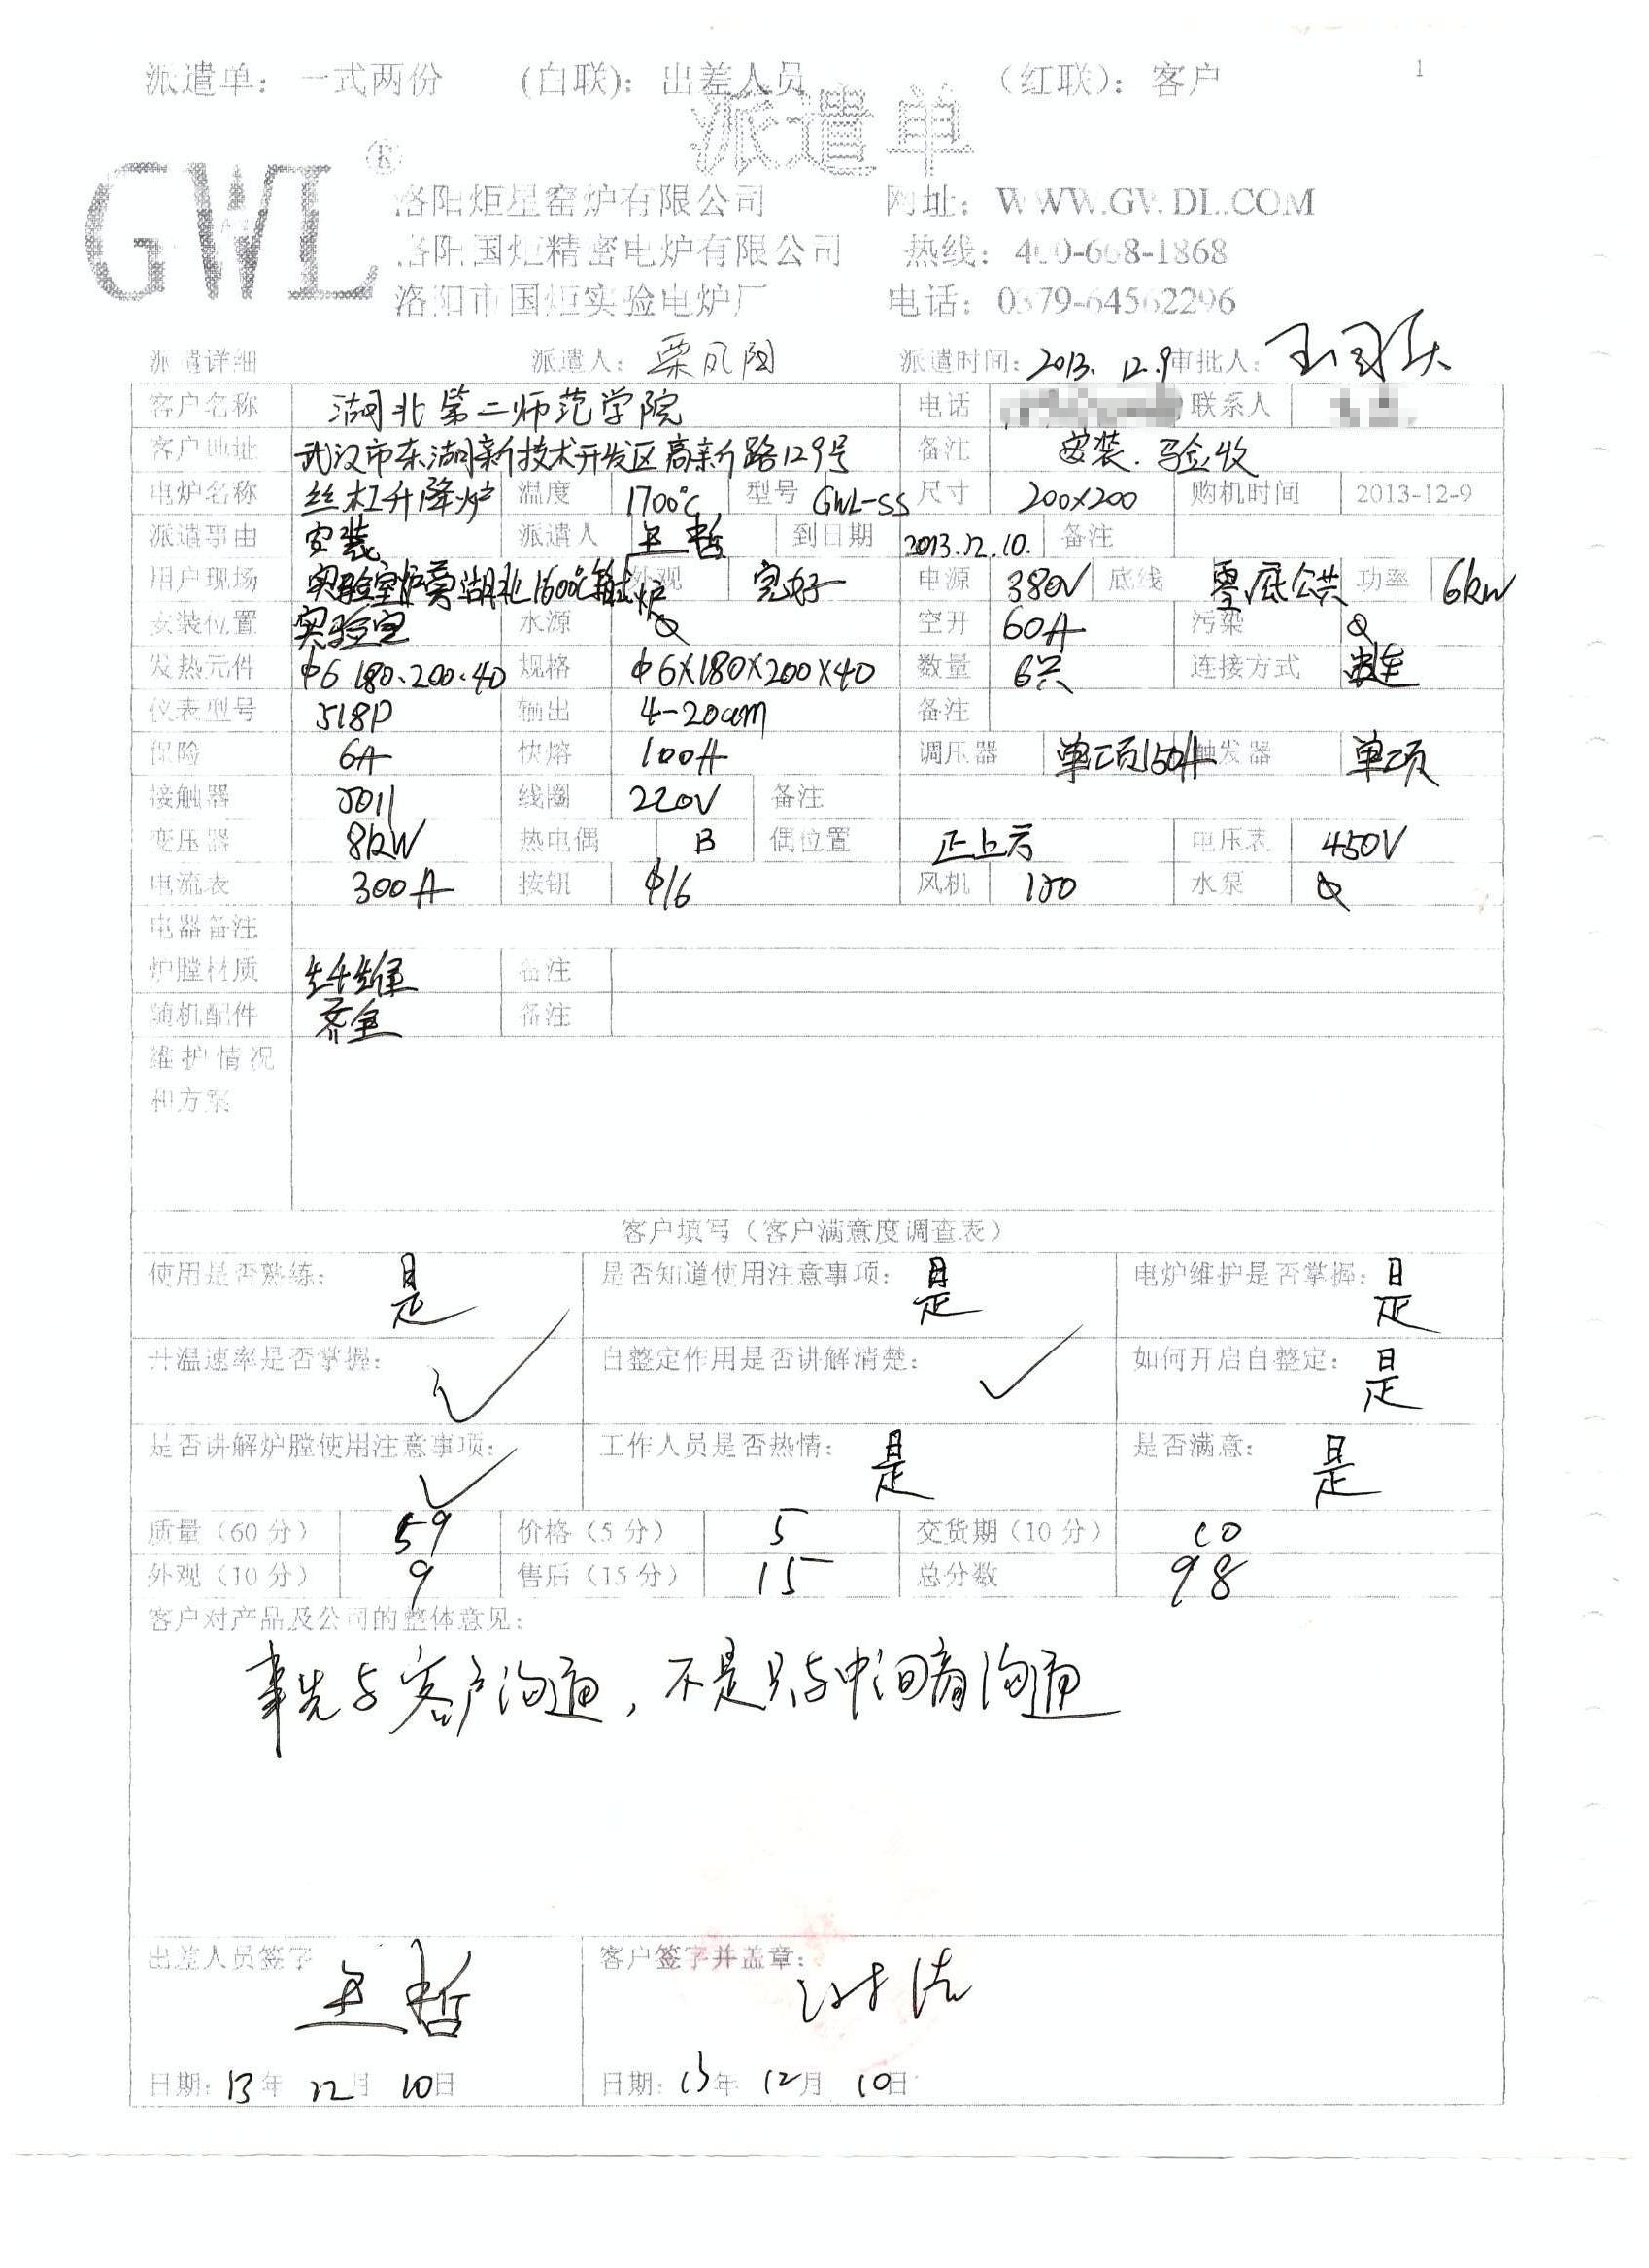 派遣单：一式两份 （白联）：出差人员 （红联）：客户 1
派遣单
GWL ®
洛阳炬星窑炉有限公司 网址：WWW.GWDL.COM
洛阳国炬精密电炉有限公司 热线：400-668-1868
洛阳市国炬实验电炉厂 电话：0379-64562296
派遣详细 派遣人：栗凤阁 派遣时间：2013.12.9 审批人：
客户名称 湖北第二师范学院 电话 联系人
客户地址 武汉市东湖新技术开发区高新路129号 备注 安装.验收
电炉名称 丝杠升降炉 温度 1700℃ 型号 GWL-SS 尺寸 200×200 购机时间 2013-12-9
派遣事由 安装 派遣人 王哲 到日期 2013.12.10. 备注
用户现场 实验室炉旁湖北1600℃箱式炉 外观 完好 电源 380V 底线 零底公共 功率 6kW
安装位置 实验室 水源 空开 60A 污染
发热元件 φ6.180.200.40 规格 φ6×180×200×40 数量 6只 连接方式 串连
仪表型号 518P 输出 4-20am 备注
保险 6A 快熔 100A 调压器 单项150A 触发器 单项
接触器 5011 线圈 220V 备注
变压器 8kW 热电偶 B 偶位置 正上方 电压表 450V
电流表 300A 按钮 φ16 风机 150 水泵
电器备注
炉膛材质 纤维 备注
随机配件 齐全 备注
维护情况
和方案
客户填写（客户满意度调查表）
使用是否熟练：是 是否知道使用注意事项：是 电炉维护是否掌握：是
升温速率是否掌握：✓ 自整定作用是否讲解清楚：✓ 如何开启自整定：是
是否讲解炉膛使用注意事项：✓ 工作人员是否热情：是 是否满意：是
质量（60分） 59 价格（5分） 5 交货期（10分） 10
外观（10分） 9 售后（15分） 15 总分数 98
客户对产品及公司的整体意见：
事先与客户沟通，不是只与中间商沟通
出差人员签字 王哲 客户签字并盖章：
日期：13年 12月 10日 日期：13年 12月 10日